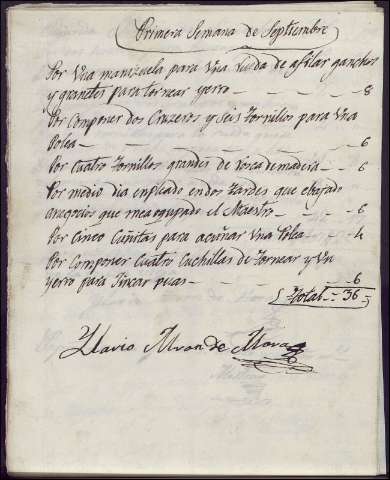 Primera Semana de Septiembre
Por Una manizuela para Una rueda de afilar ganchos
y granetes para tornear yerro - - - - 8
Por Componer dos Cruzeros y Seis Tornillos para Una
Polea - - - - 6
Por Cuatro Tornillos grandes de rosca de madera - - 6
Por medio dia enpleado en dos tardes que e
a negocios que me a ocupado el Maestro - - - 6
Por Cinco Cuñitas para acuñar Una Polea - 4
Por Componer Cuatro Cuchillas de Tornear y Un
yerro para Fincar - - - - 6
Total - - 36
de Mora